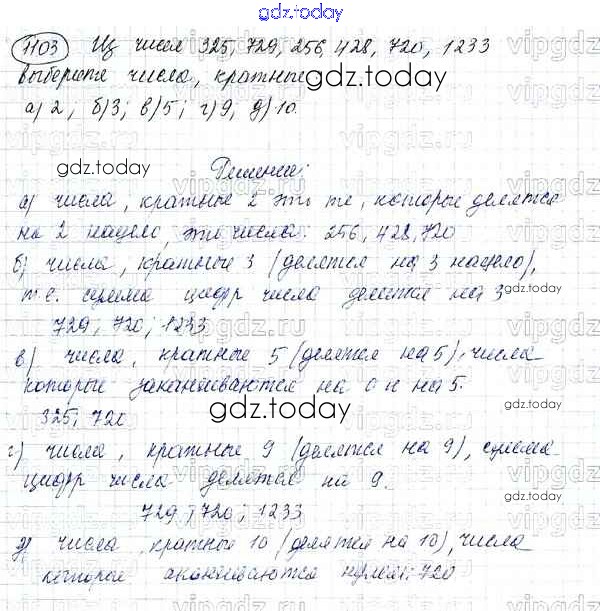 gdz.today
1103 Из чисел 325, 729, 256, 428, 720, 1233
выберите числа, кратные
gdz.today
а) 2; б) 3; в) 5; г) 9; д) 10.
gdz.today
Решение:
а) числа, кратные 2 это те, которые делятся
на 2 нацело, это числа: 256, 428, 720
б) числа, кратные 3 (делятся на 3 нацело),
gdz.today
т.е. сумма цифр числа делится на 3
729, 720, 1233
в) числа, кратные 5 (делятся на 5), числа
которые заканчиваются на 0 и на 5.
gdz.today
325, 720
г) числа, кратные 9 (делятся на 9), сумма
gdz.today
цифр числа делится на 9.
729, 720, 1233
д) числа, кратные 10 (делятся на 10), числа
которые оканчиваются 720